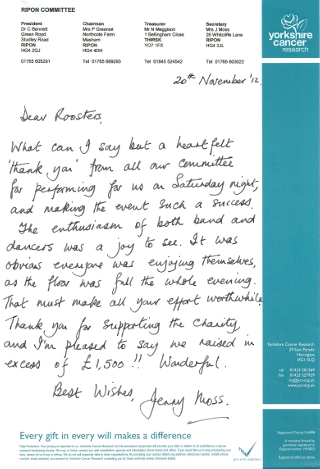 RIPON COMMITTEE
President
Dr C Bennett
Green Royd
Studley Road
RIPON
HG4 2QJ
01765 635291
Chairman
Mrs P Greensit
Northcote Farm
Masham
RIPON
HG4 4DH
Tel 01765 689265
Treasurer
Mr N Megginson
1 Bellingham Close
THIRSK
YO7 1FX
Tel 01845 524542
Secretary
Mrs J Moss
26 Whitcliffe Lane
RIPON
HG4 2JL
Tel 01765 603022
yorkshire
cancer
research
20th November '12.
Dear Roosters,
What can I say but a heartfelt
'thank you' from all our committee
for performing for us on Saturday night,
and making the event such a success.
The enthusiasm of both band and
dancers was a joy to see. It was
obvious everyone was enjoying themselves,
as the floor was full the whole evening.
That must make all your effort worthwhile.
Thank you for supporting the Charity
and I'm pleased to say we raised in
excess of £1,500 !! Wonderful.
Best Wishes,
Jenny Moss.
Yorkshire Cancer Research
39 East Parade
Harrogate
HG1 5LQ
tel 01423 501269
fax 01423 527929
hq@ycr.org.uk
www.ycr.org.uk
Every gift in every will makes a difference